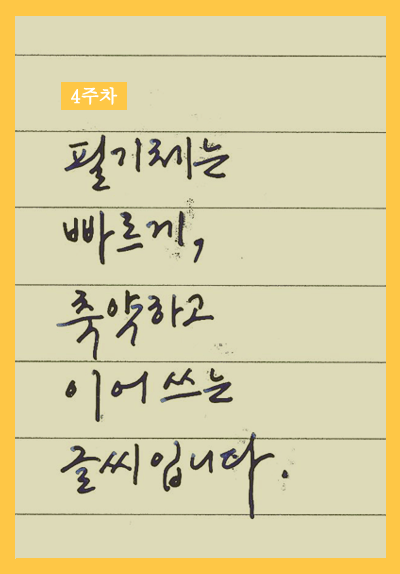 4주차
필기체는
빠르게,
축약하고
이어 쓰는
글씨입니다.